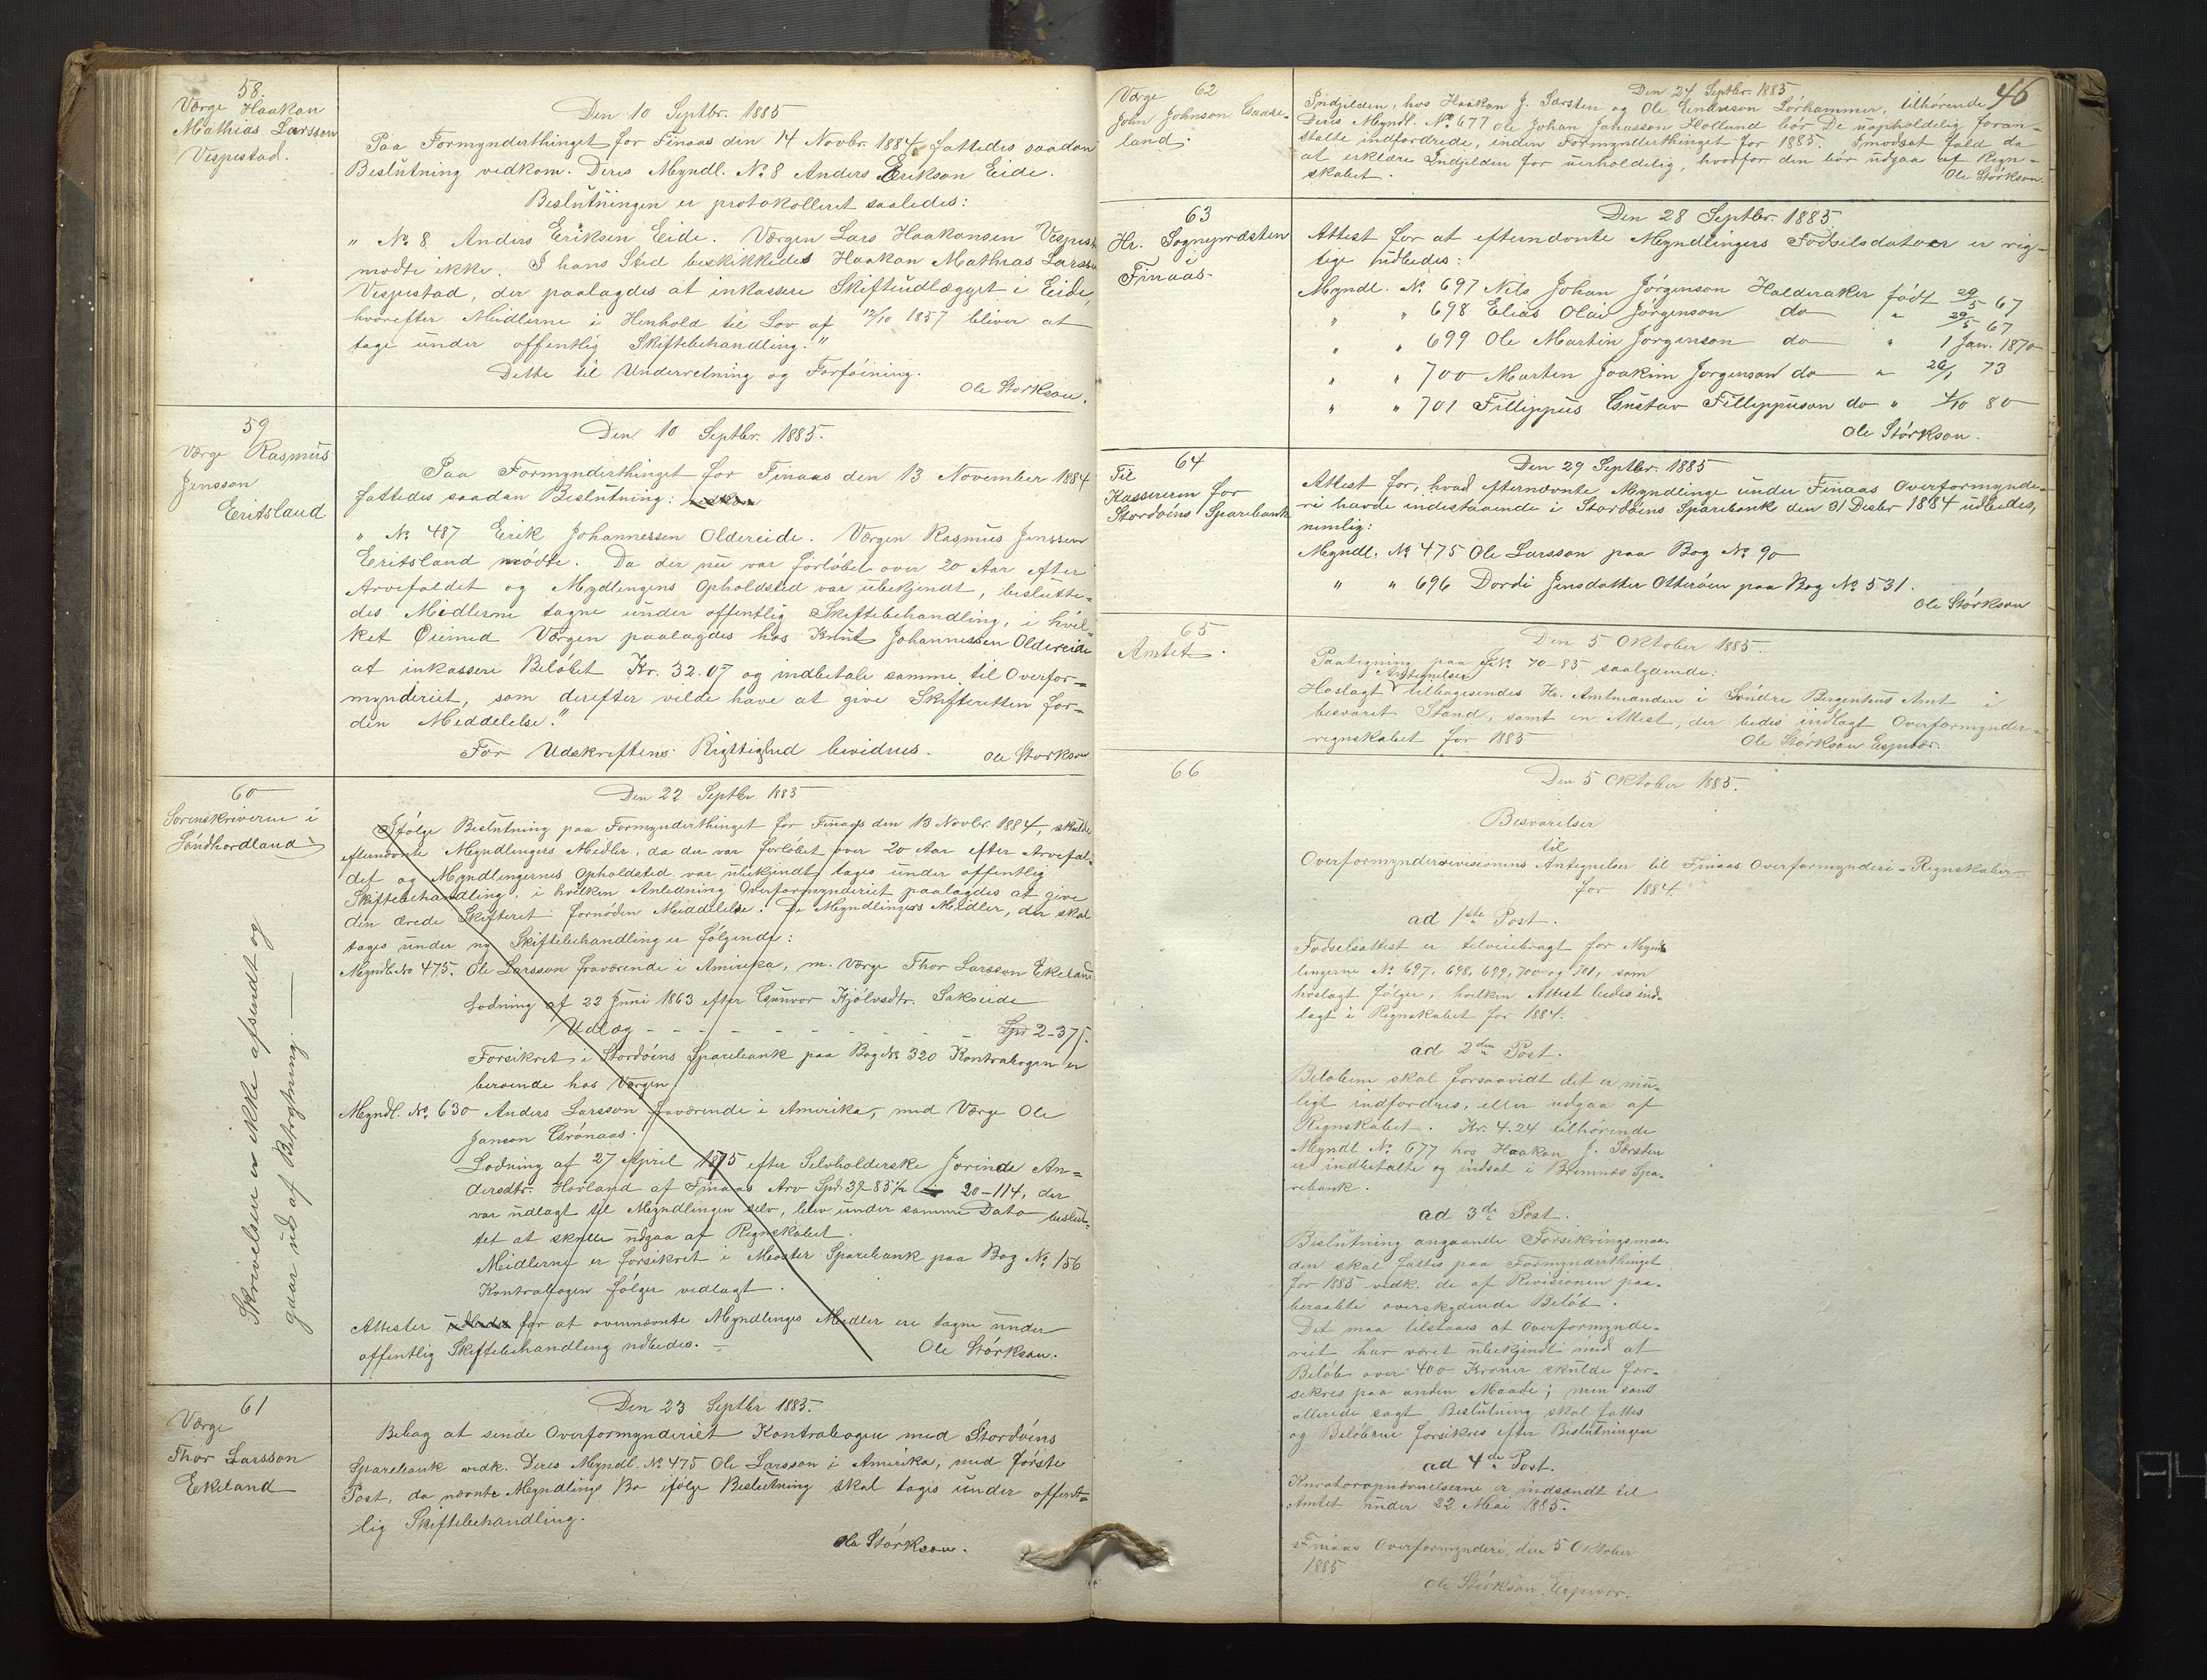 58.
Værge Haakon
Mathias Larsson
Vespestad.
Den 10 Septbr. 1885
Paa Formynderthinget for Finaas den 14 Novbr. 1884 fattedes saadan
Beslutning vedkom. Deres Myndl. No 8 Anders Erikson Eide.
Beslutningen er protokolleret saaledes:
" No 8 Anders Eriksen Eide. Værgen Lars Haakonsen Vespest
mødte ikke. I hans Sted beskikkedes Haakon Mathias Larsso
Vespestad, der paalagdes at inkassere Skifteudlægget i Eide,
hvorefter Midlerne i Henhold til Lov af 12/10 1857 bliver at
tage under offentlig Skiftebehandling."
Dette til Underretning og Forføining.
Ole Størkson.
59
Værge Rasmus
Jensson
Eeritsland
Den 10 Septbr. 1885.
Paa Formynderthinget for Finaas den 13 November 1884
fattedes saadan Beslutning:
" No 487 Erik Johannessen Oldereide. Værgen Rasmus Jenssen
Eeritsland mødte. Da der nu var forløbet over 20 Aar efter
Arvefaldet og Mydlengens Opholdsted var ubekjendt, beslutte-
des Midlerne tagne under offentlig Skiftebehandling, i hvil-
ket Øiemed Værgen paalagdes hos Knut Johannessen Oldereide
at inkassere Beløbet Kr. 32.07 og indbetale samme til Overfor-
mynderiet, som derefter vilde have at give Skifteretten for-
den Meddelelse."
For Udskriftens Rigttighed bevidnes.
Ole Størkson
60
Sorenskriveren i
Søndhordland
Skrivelsen er ikke afsendt og
gaar ud af Betragtning. —
Den 22 Septbr. 1885
Ifølge Beslutning paa Formynderthinget for Finaas den 13 Novbr. 1884, skulde
efternævnte Myndlingers Midler, da der var forløbet over 20 Aar efter Arvefal-
det og Myndlingernes Opholdsted var ubekjendt tages under offentlig
Skiftebehandling, i hvilken Anledning Overformynderiet paalagdes at give
den ærede Skifteret fornøden Meddelelse. De Myndlingers Midler, der skal
tages under ny Skiftebehandling er følgende:
Myndl. No 475. Ole Larsson fraværende i Amerika, m. Værge Thor Larsson Ekeland
Lodning af 22 Juni 1863 efter Gunvor Kjølvsdtr. Sakseide
Udlæg - - - - - - - - - Spd 2-37".
Forsikret i Stordøens Sparebank paa Bog No 320 Kontrabogen er
beroende hos Værgen
Myndl. No. 630 Anders Larsson fraværende i Amerika, med Værge Ole
Janson Grønaas.
Lodning af 27 April 1875 efter Selvholderske Jorinde An-
dersdtr. Hovland af Finaas Arv Spd. 39-85 1/2 20-114, der
var udlagt til Myndlingen selv, blev under samme Dato beslut-
tet at skulle udgaa af Regnskabet.
Midlerne er forsikret i Moster Sparebank paa Bog No. 156
Kontrabogen følger vedlagt.
Attester for at ovennævnte Myndlinges Midler ere tagne under
offentlig Skiftebehandling udbedes. —
Ole Størkson.
61
Værge
Thor Larsson
Ekeland
Den 23 Septbr 1885.
Behag at sende Overformynderiet Kontrabogen med Stordøens
Sparebank vedk. Deres Myndl. No 475 Ole Larsson i Amerika, med første
Post, da nævnte Myndlings Bo ifølge Beslutning skal tages under offent-
lig Skiftebehandling.
Ole Størkson.
46
62
Værge
John Johnson
land.
Den 24 Septbr. 1885
Indgjelden, hos Haakon J. Særsten og Ole Endreson Sørhammer, tilhørende
Deres Myndl. No 677 Ole Johan Johnasson Holland bør De uopholdelig foran-
stalte indfordrede, inden Formynderthinget for 1885. I modsat fald da
at erklære Indgjelden for uerholdelig, hvorfor den bør udgaa af Regn-
skabet.
Ole Størkson.
63
Hr. Sognepræsten
i
Finaas-
Den 28 Septbr. 1885
Attest for at efternævnte Myndlingers Fødselsdatoer er rig-
tige udbedes:
Myndl. No. 697 Nils Johan Jørgenson Halderaker født 29/5 67
" " 698 Elias Olai Jørgenson do " 29/5 67
" " 699 Ole Martin Jørgenson do " 1 Jan. 1870
" " 700 Marten Joakim Jørgenson do " 26/1 73
" " 701 Fillippus Gustav Fillippuson do " 4/10 80
Ole Størkson.
64
Til
Kassereren for
Stordøens Sparebank
Den 29 Septbr. 1885
Attest for, hvad efternævnte Myndlinge under Finaas Overformynde-
ri havde indestaaende i Stordøens Sparebank den 31 Decbr 1884 udbedes,
nemlig:
Myndl. No 475 Ole Larsson paa Bog No 90
" " 696 Dordi Jensdatter Otterøen paa Bog No 531.
Ole Størkson
65
Amtet.
Den 5 Oktober 1885.
Paategning paa J.No 70-85 saalydende:
Antegnelser
Hoslagt tilbagesendes Hr. Amtmanden i Søndre Bergenhus Amt i
besvaret Stand, samt en Attest, der bedes indlagt Overformynder-
regnskabet for 1885
Ole Størkson Espevær.
66
Den 5 Oktober 1885.
Besvarelser
til
Overformynderrevisionens Antegnelser til Finaas Overformynderi-Regnskaber
for 1884
ad 1ste Post.
Fødselsattest er tilveiebragt for Mynd-
lingerne No. 697, 698, 699, 700 og 701, som
hoslagt følger, hvilken Attest bedes ind-
lagt i Regnskabet for 1884.
ad 2den Post.
Beløbene skal forsaavidt det er mu-
ligt indfordres, eller udgaa af
Regnskabet. Kr. 4.24 tilhørende
Myndl No. 677 hos Haakon J. Særsten
er indbetalte og indsat i Bremnæs Spa-
rebank.
ad 3de Post.
Beslutning angaaende Forsikringsmaa-
den skal fattes paa Formynderthinget
for 1885 vedk. de af Revisionen paa-
beraabte overskydende Beløb.
Det maa tilstaaes at Overformynde-
riet har været ubekjendt med at
Beløb over 400 Kroner skulde for-
sikres paa anden Maade; men som
allerede sagt Beslutning skal fattes
og Beløbene forsikres efter Beslutningen
ad 4de Post.
Kuratoropnævnelserne er indsendt til
Amtet under 22 Mai 1885.
Finaas Overformynderi, den 5 Oktober
1885
Ole Størkson, Espevær.